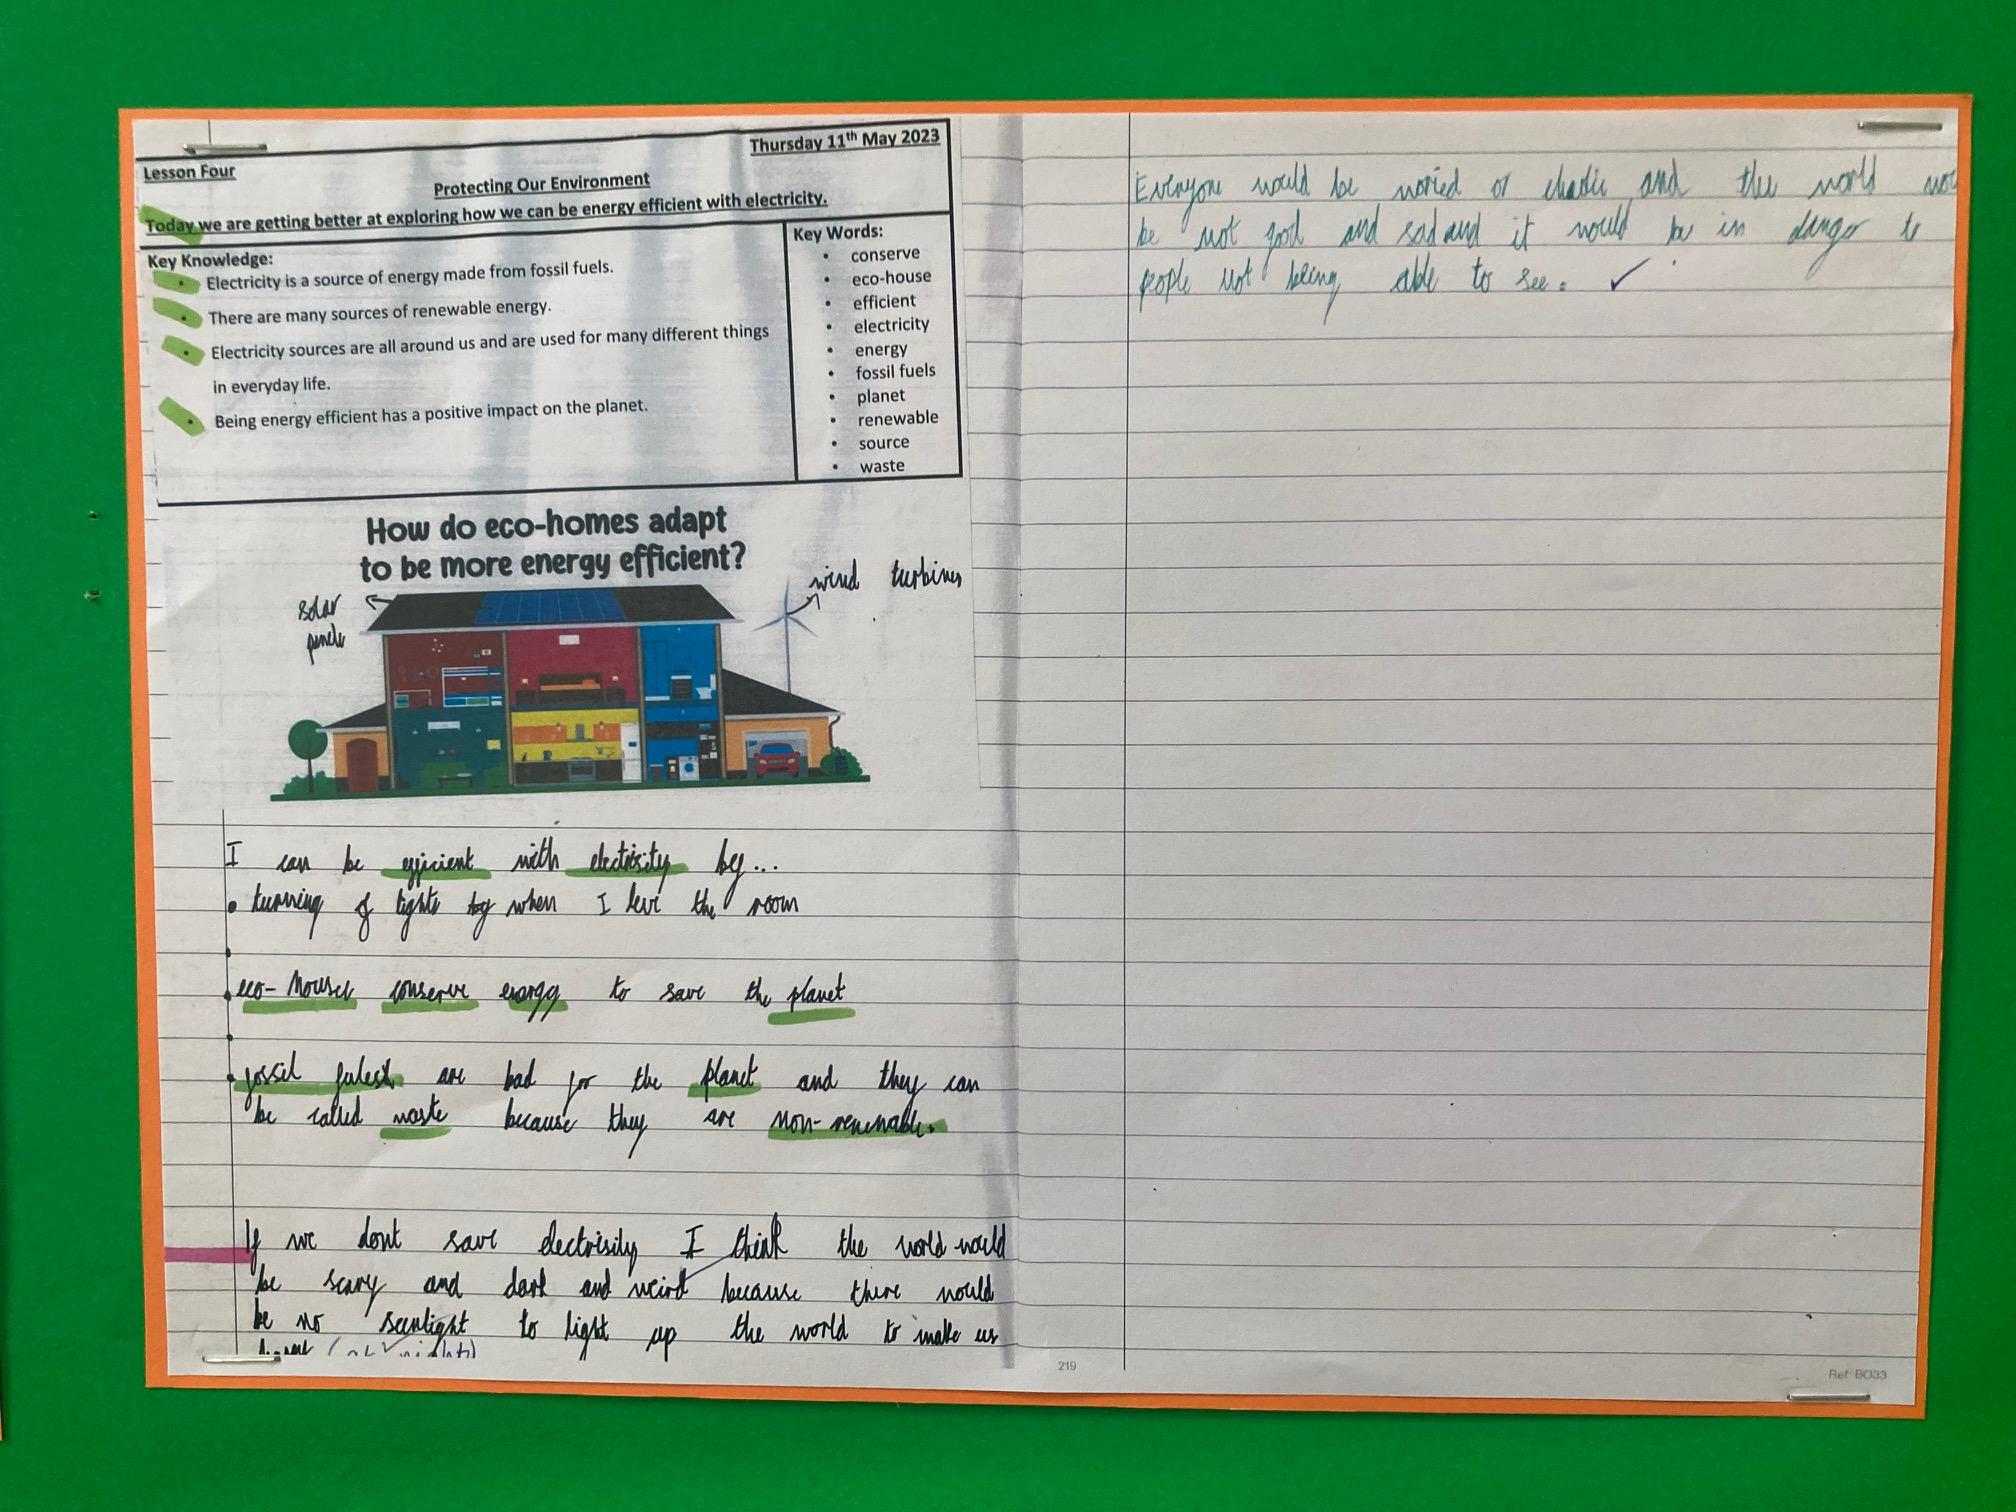 Thursday 11th May 2023
Lesson Four
Protecting Our Environment
Today we are getting better at exploring how we can be energy efficient with electricity.
Key Knowledge:
• Electricity is a source of energy made from fossil fuels.
• There are many sources of renewable energy.
• Electricity sources are all around us and are used for many different things
in everyday life.
• Being energy efficient has a positive impact on the planet.
Key Words:
• conserve
• eco-house
• efficient
• electricity
• energy
• fossil fuels
• planet
• renewable
• source
• waste
How do eco-homes adapt
to be more energy efficient?
solar
wind turbines
I can be efficient with electrisity by...
• turning of lights when I leve the room
• eco-houses conserve energy to save the planet
• fossil are bad for the planet and they can
be called waste because they are non-renewable.
If we dont save electrisity I think the world would
be scary and dark and weird because there would
be no sunlight to light up the world to make us
Everyone would be woried or and the world
be not good and sad and it would be in danger
people not being able to see.
219
Ref: BO33